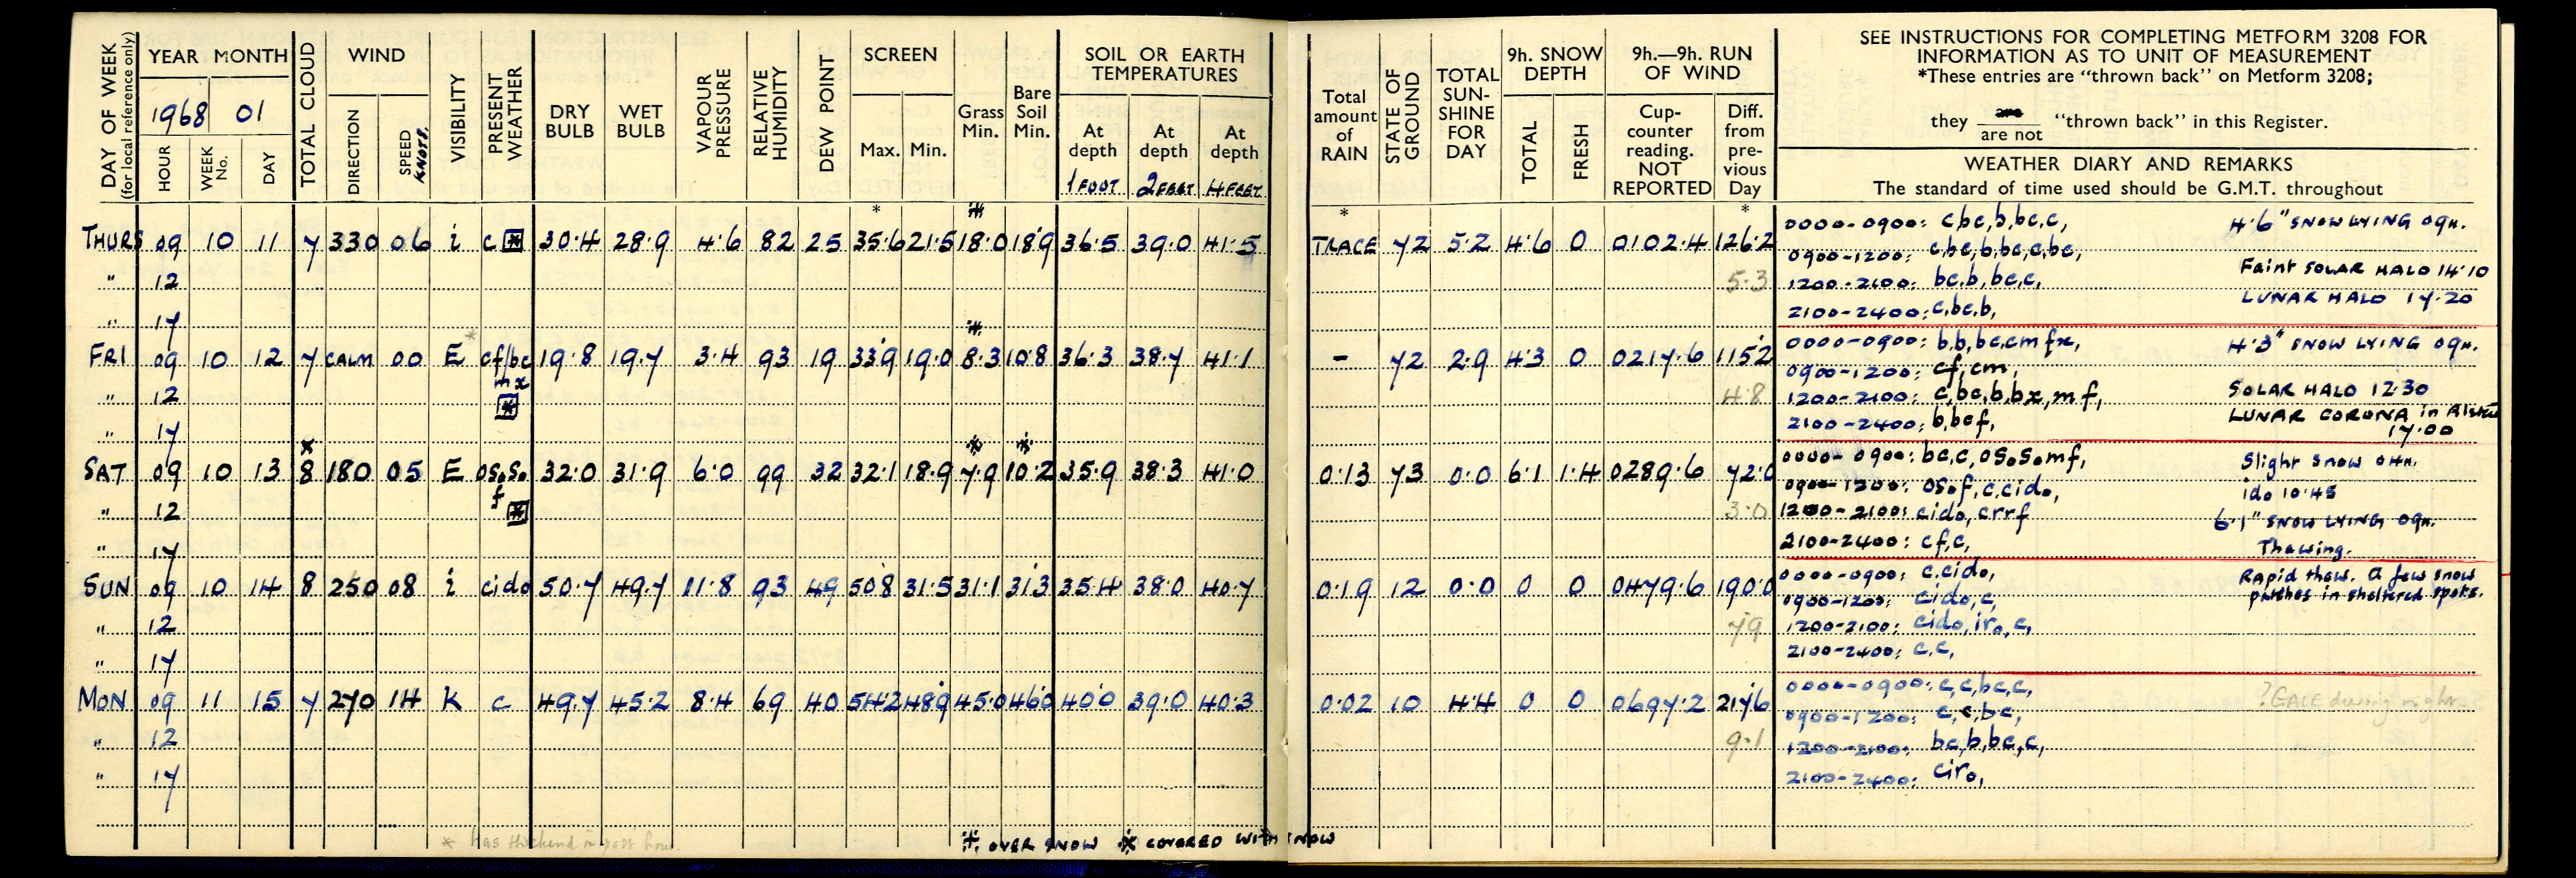 DAY OF WEEK (for local reference only)
YEAR MONTH
1968 01
HOUR WEEK No. DAY
TOTAL CLOUD
WIND
DIRECTION SPEED KNOTS.
VISIBILITY
PRESENT WEATHER
DRY BULB
WET BULB
VAPOUR PRESSURE
RELATIVE HUMIDITY
DEW POINT
SCREEN
Max. Min.
Grass Min.
Bare Soil Min.
SOIL OR EARTH TEMPERATURES
At depth 1 FOOT
At depth 2 FEET
At depth 4 FEET
Total amount of RAIN
STATE OF GROUND
TOTAL SUN-SHINE FOR DAY
9h. SNOW DEPTH
TOTAL FRESH
9h.—9h. RUN OF WIND
Cup-counter reading. NOT REPORTED
Diff. from pre-vious Day
SEE INSTRUCTIONS FOR COMPLETING METFORM 3208 FOR
INFORMATION AS TO UNIT OF MEASUREMENT
*These entries are "thrown back" on Metform 3208;
they are / are not "thrown back" in this Register.
WEATHER DIARY AND REMARKS
The standard of time used should be G.M.T. throughout
THURS 09 10 11 7 330 06 i c 30.4 28.9 4.6 82 25 35.6 21.5 18.0 18.9 36.5 39.0 41.5 TRACE 72 5.2 4.6 0 0102.4 126.2
0000-0900: cbc,b,bc,c, 4.6" SNOW LYING 09H.
0900-1200: c,bc,b,bc,c,bc,
" 12 5.3
Faint SOLAR HALO 14.10
1200-2100: bc,b,bc,c,
LUNAR HALO 17.20
" 17
2100-2400: c,bc,b,
FRI 09 10 12 7 CALM 00 E cf/bc mx 19.8 19.7 3.4 93 19 33.9 19.0 8.3 10.8 36.3 38.7 41.1 - 72 2.9 4.3 0 0217.6 115.2
0000-0900: b,b,bc,cm fx, 4.3" SNOW LYING 09H.
0900-1200: cf,cm,
" 12 4.8
1200-2100: c,bc,b,bx,mf, SOLAR HALO 12.30
" 17
2100-2400: b,bcf, LUNAR CORONA in
17.00
SAT 09 10 13 8 180 05 E os₀s₀ f 32.0 31.9 6.0 99 32 32.1 18.9 7.9 10.2 35.9 38.3 41.0 0.13 73 0.0 6.1 1.4 0289.6 72.0
0000-0900: bc,c,os₀s₀mf, Slight snow 04H.
0900-1200: os₀f,c,cid₀, id₀ 10.45
" 12 3.0
1200-2100: cid₀,crrf 6.1" SNOW LYING 09H.
" 17
2100-2400: cf,c, Thawing.
SUN 09 10 14 8 250 08 i cid₀ 50.7 49.7 11.8 93 49 50.8 31.5 31.1 31.3 35.4 38.0 40.7 0.19 12 0.0 0 0 0479.6 190.0
0000-0900: c.cid₀, Rapid thaw. A few snow
0900-1200: cid₀,c, patches in sheltered spots.
" 12 7.9
1200-2100: cid₀,ir₀,c,
" 17
2100-2400: c,c,
MON 09 11 15 7 270 14 K c 49.7 45.2 8.4 69 40 54.2 48.9 45.0 46.0 40.0 39.0 40.3 0.02 10 4.4 0 0 0697.2 217.6
0000-0900: c,c,bc,c, ? GALE during night
0900-1200: c,c,bc,
" 12 9.1
1200-2100: bc,b,bc,c,
" 17
2100-2400: cir₀,
* has thickened in past hour.
OVER SNOW COVERED WITH SNOW